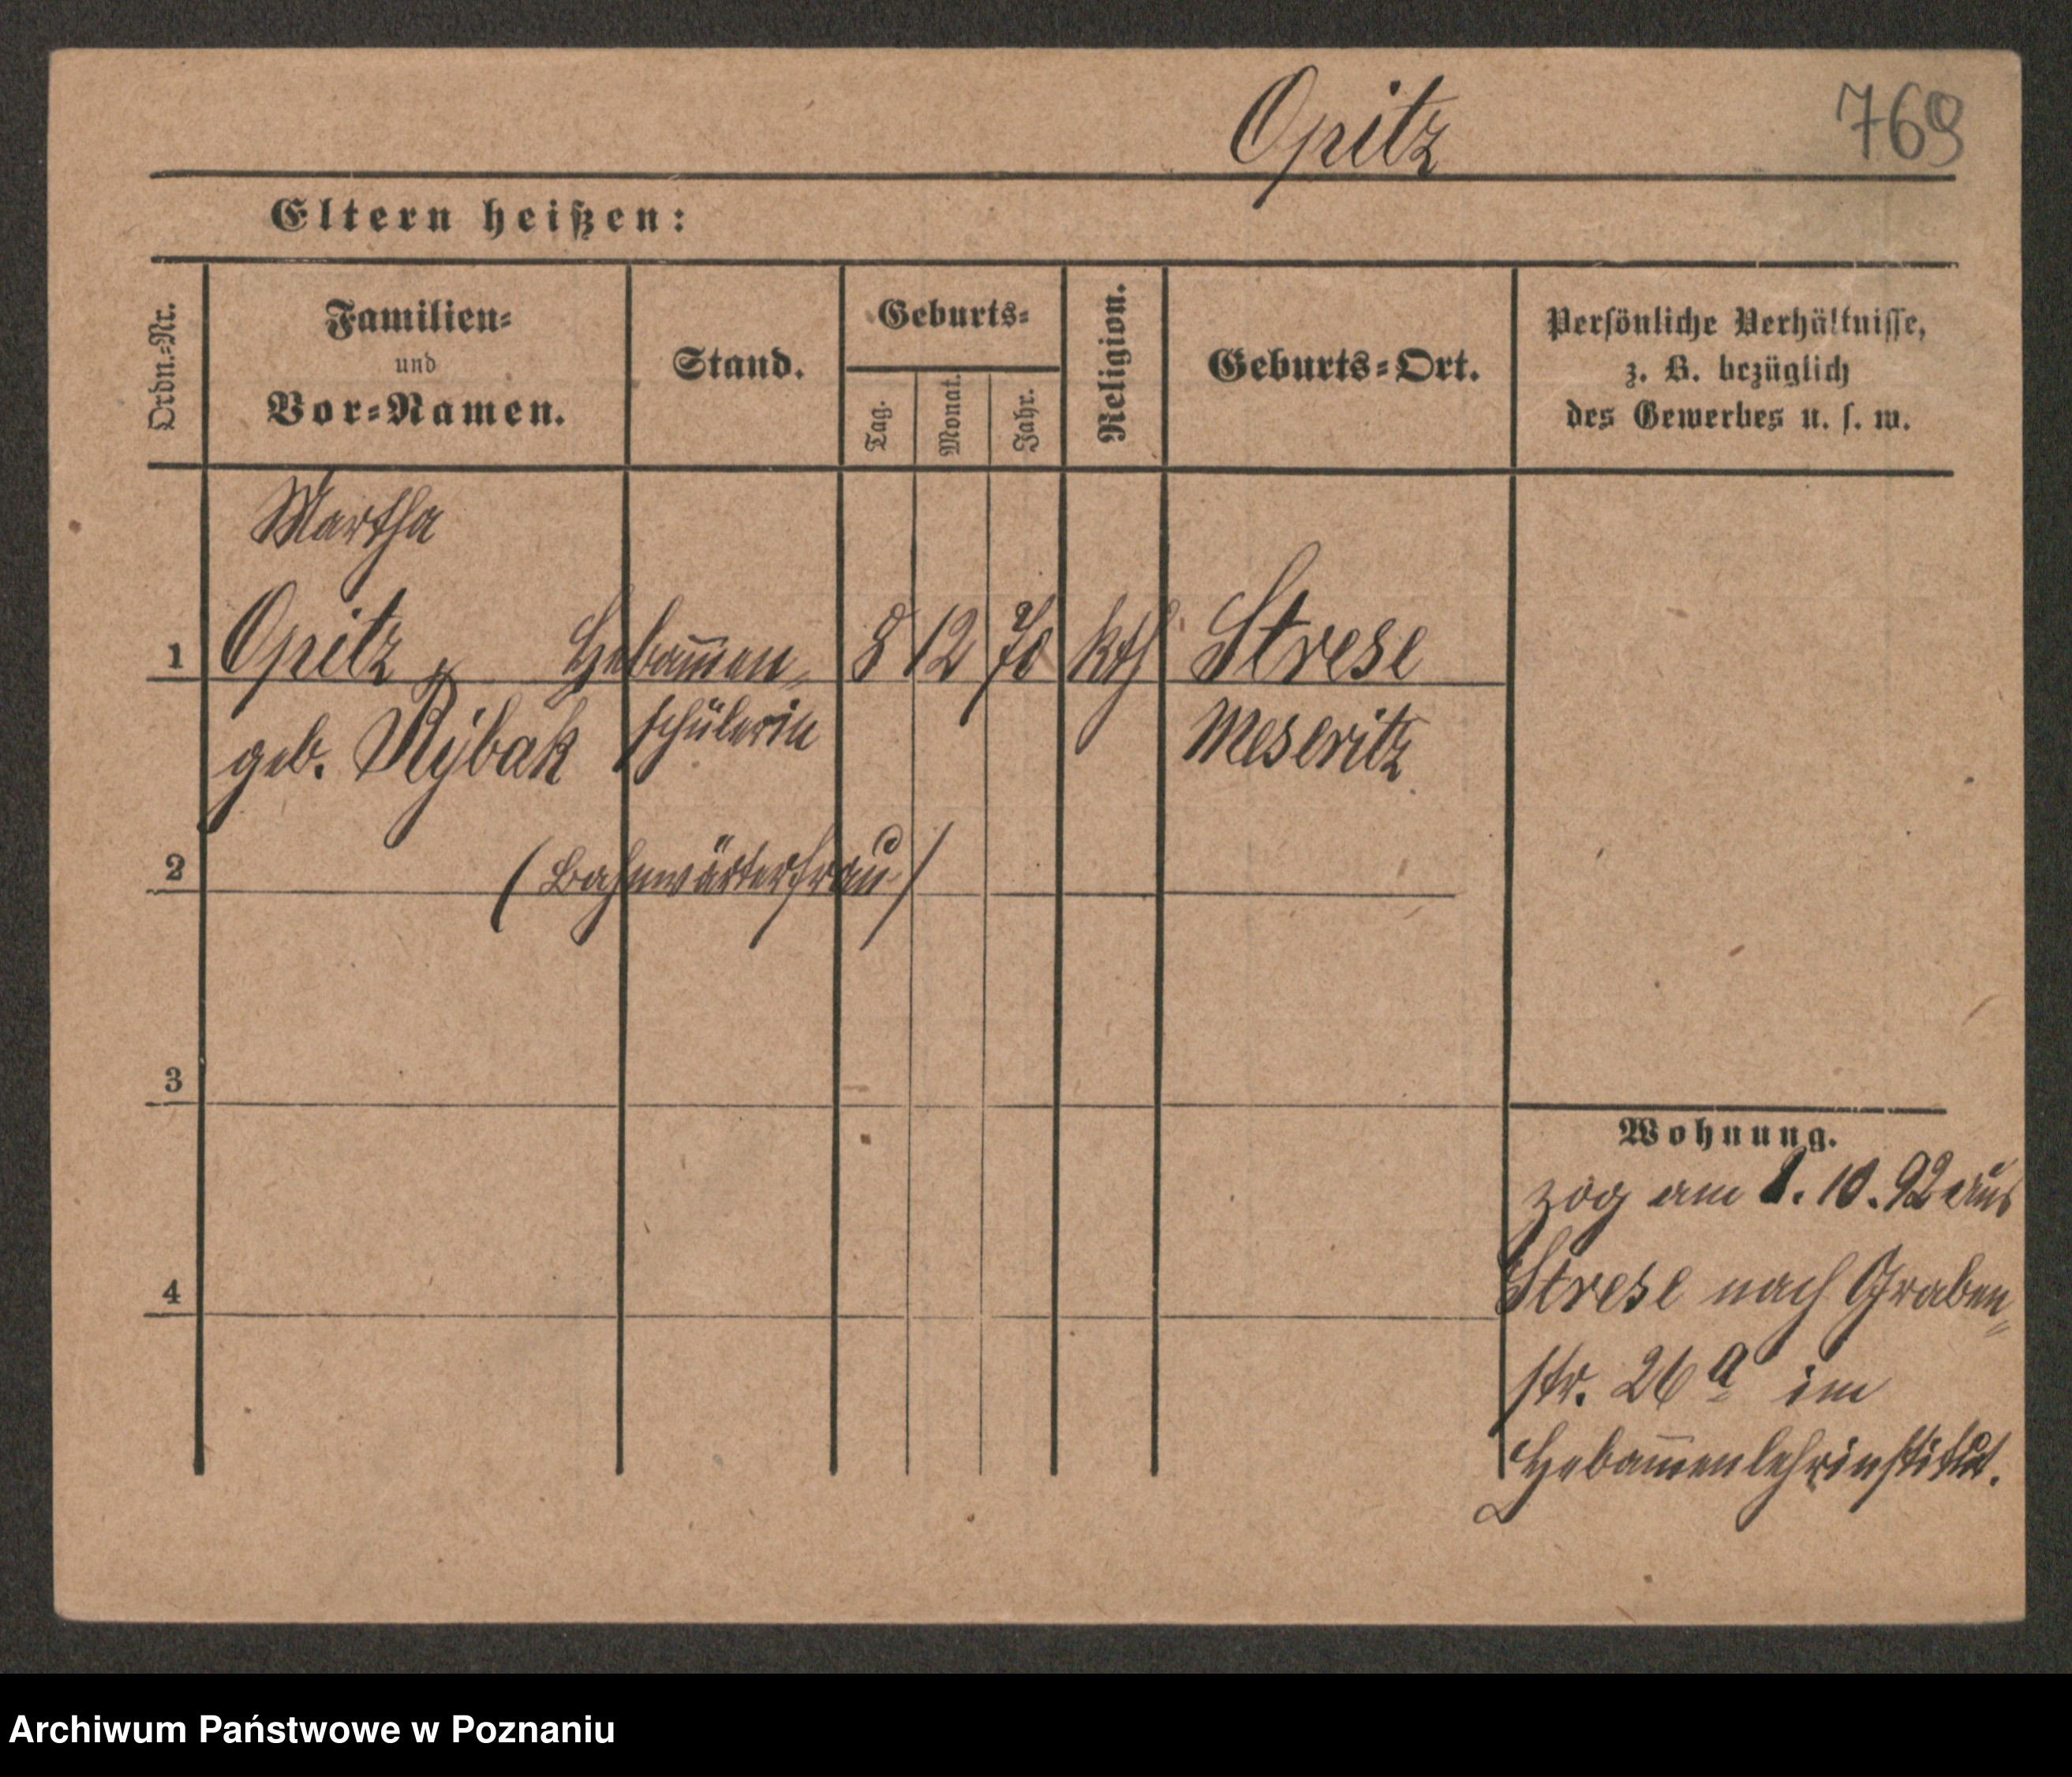 Opitz
769
Eltern heißen:
Ordn.=Nr.
Familien=
und
Vor=Namen.
Stand.
Geburts=
Tag.
Monat.
Jahr.
Religion.
Geburts=Ort.
Persönliche Verhältnisse,
z. B. bezüglich
des Gewerbes u. s. w.
Martha
1 Opitz Hebam̅en= 8 12 70 kth Strese
geb. Rÿbak schülerin Meseritz
2 (Bahnwärterfrau)
3
4
Wohnung.
zog am 1. 10. 92 aus
Strese nach Graben=
str. 26 a im
Hebam̅enlehrinstitut.
Archiwum Państwowe w Poznaniu